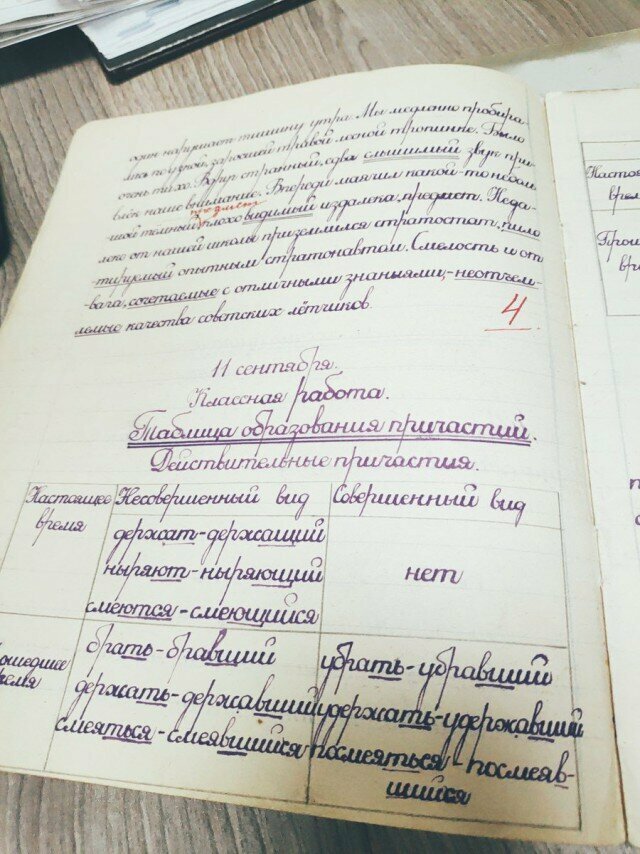 один нарушает тишину утра. Мы медленно пробира-
лись по узкой, заросшей травой лесной тропинке. Было
очень тихо. Вдруг странный, едва слышимый звук при-
влёк наше внимание. Впереди маячил какой-то неболь
шой темный, плохо видимый издалека, предмет. Неда-
предмет
леко от нашей школы приземлился стратостат, пило
тируемый опытным стратонавтом. Смелость и от
-вага, сочетаемые с отличными знаньями,-неотъем-
лемые качества советских лётчиков.
4
11 сентября.
Классная работа.
Таблица образования причастий.
Действительные причастия.
Настоящее время
Несовершенный вид
Совершенный вид
держат-держащий
ныряют-ныряющий
смеются-смеющийся
нет
брать-бравший
держать-державший
смеяться-смеявшийся
убрать-убравший
удержать-удержавший
посмеяться-посмеяв-
шийся